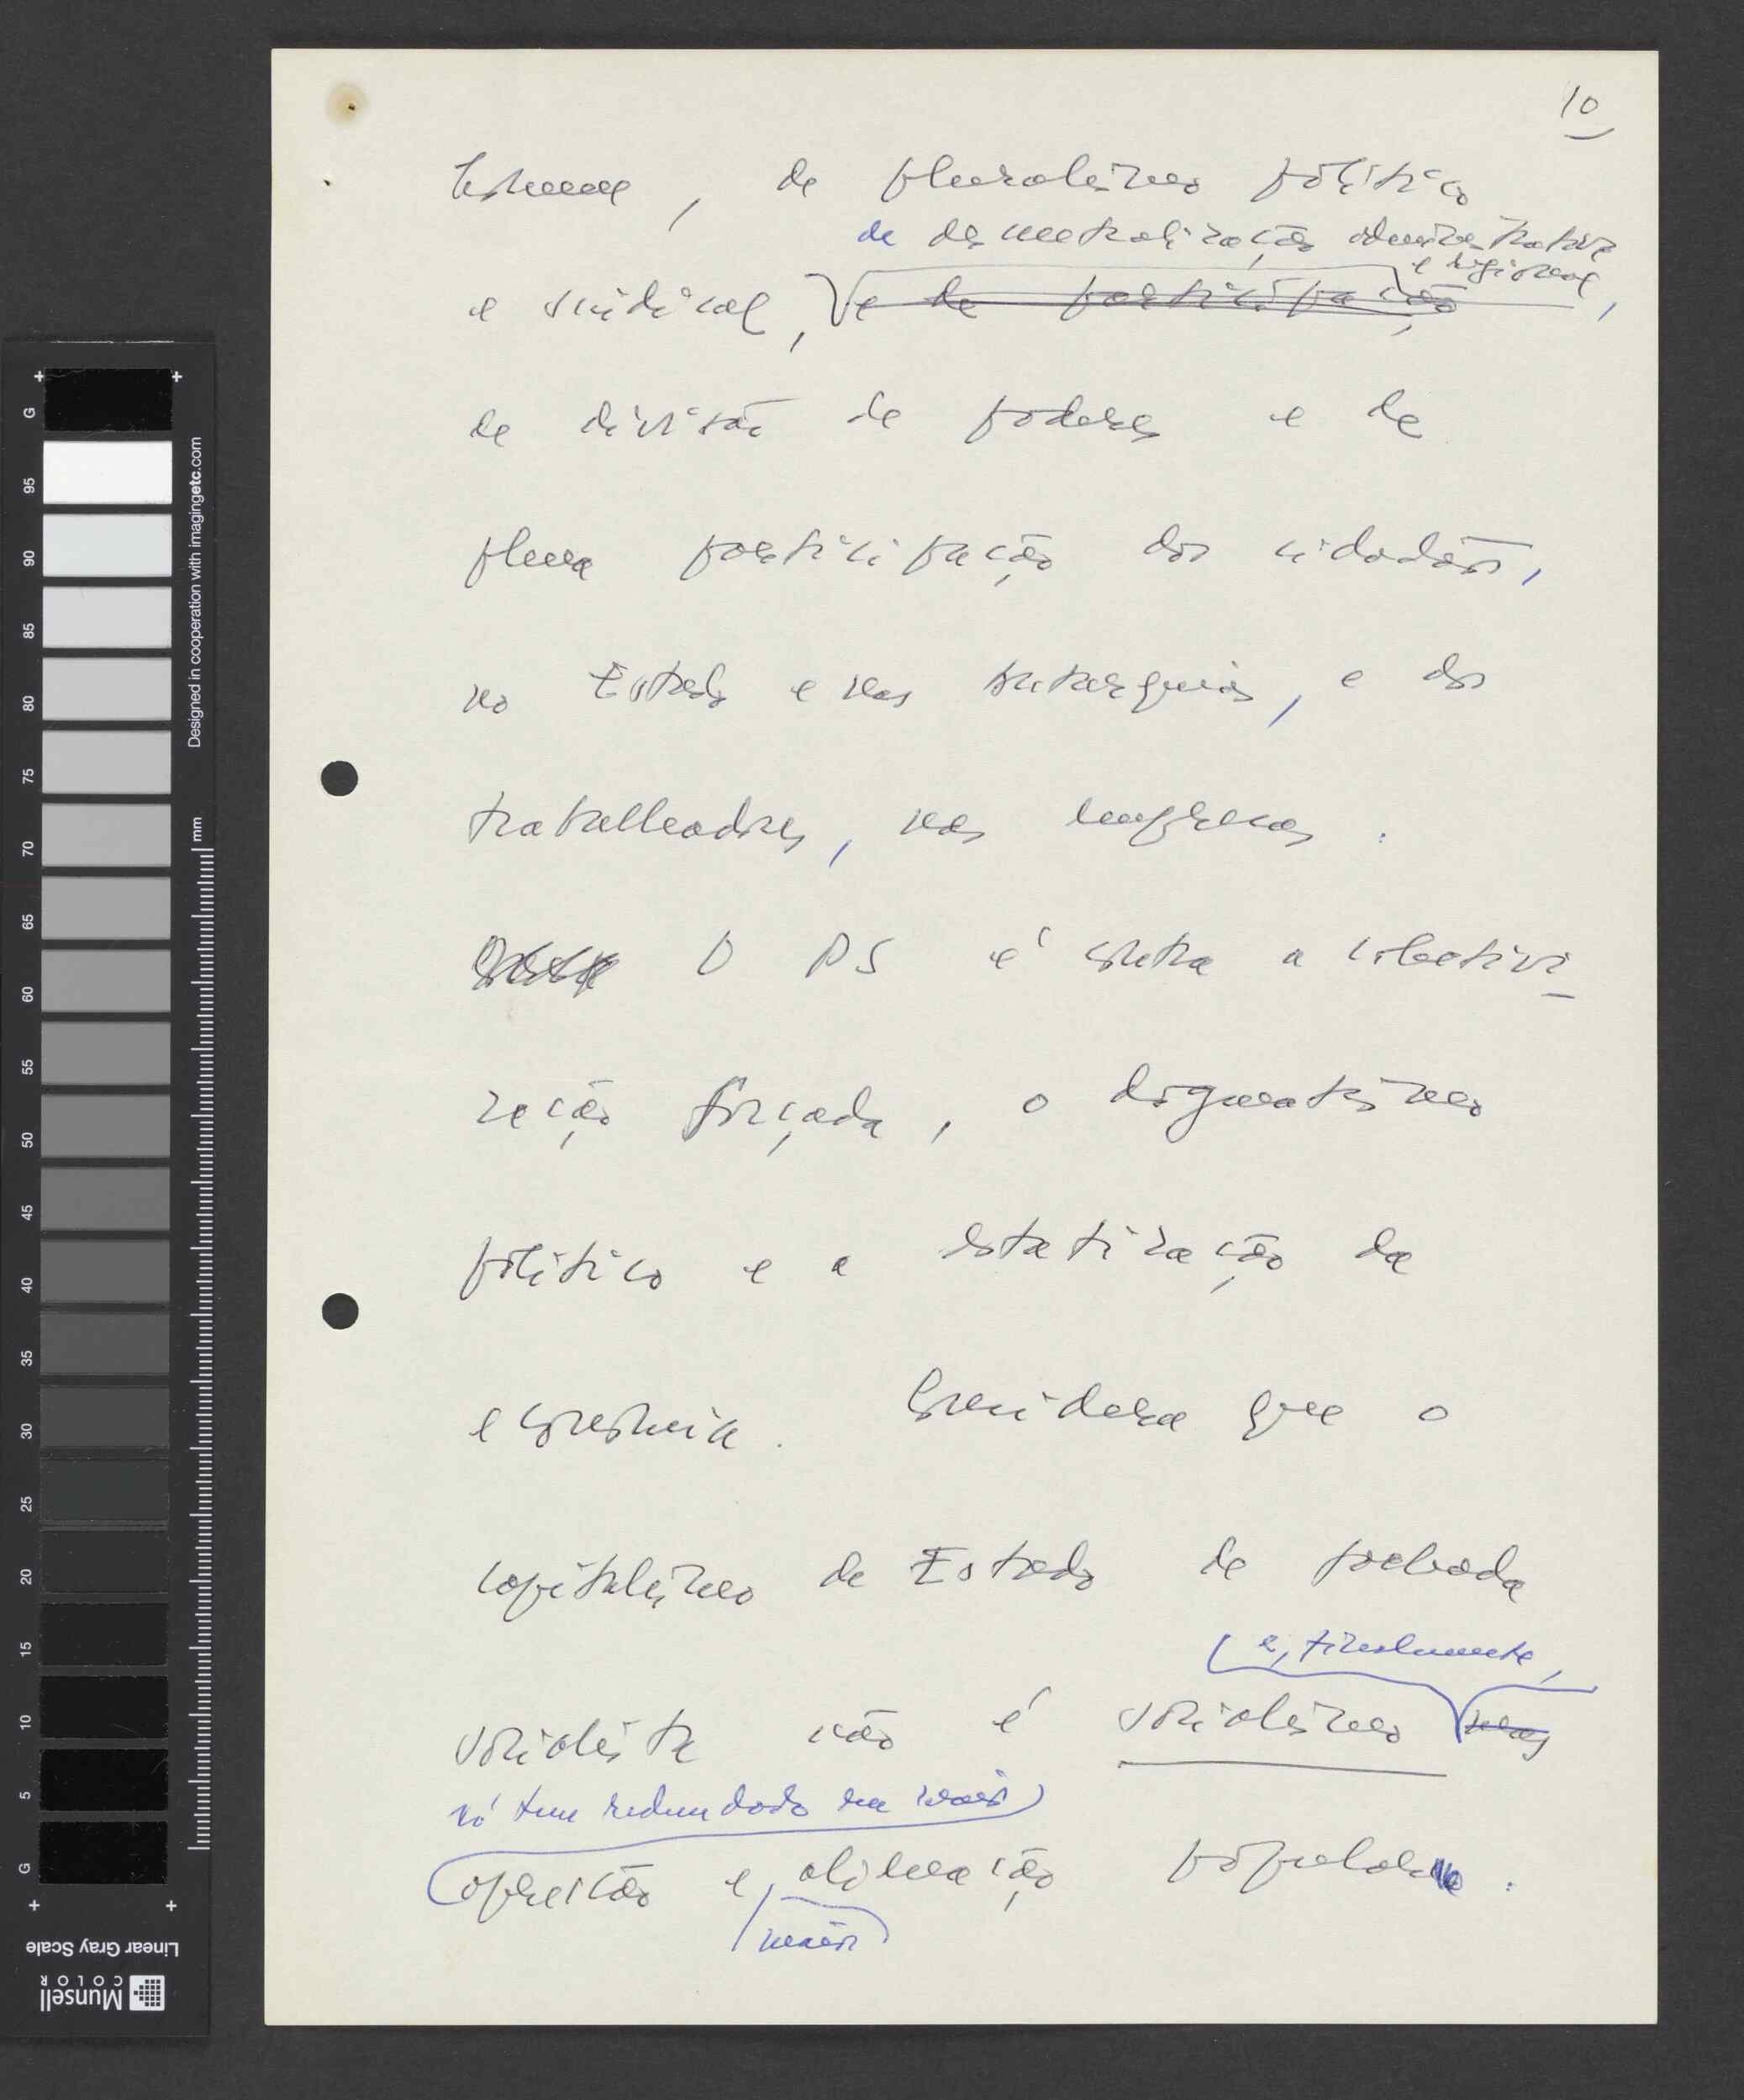 10
de pluralismo político
de descentralização administrativa
e regional,
e sindical, e de participação
de divisão de poderes e de
plena participação dos cidadãos,
no Estado e nas autarquias, e dos
trabalhadores, nas empresas.
O PS é contra a colectivi
zação forçada, o dogmatismo
político e a estatização da
economia. Considera que o
capitalismo de Estado de fachada
(e, finalmente,
socialista não é socialismo mas
só tem redundado em maior
opressão e alienação popular.
maior
G
95
90
85
80
75
70
65
60
55
50
45
40
35
30
25
20
15
10
5
G
Designed in cooperation with imagingetc.com
mm
Linear Gray Scale
Munsell
COLOR